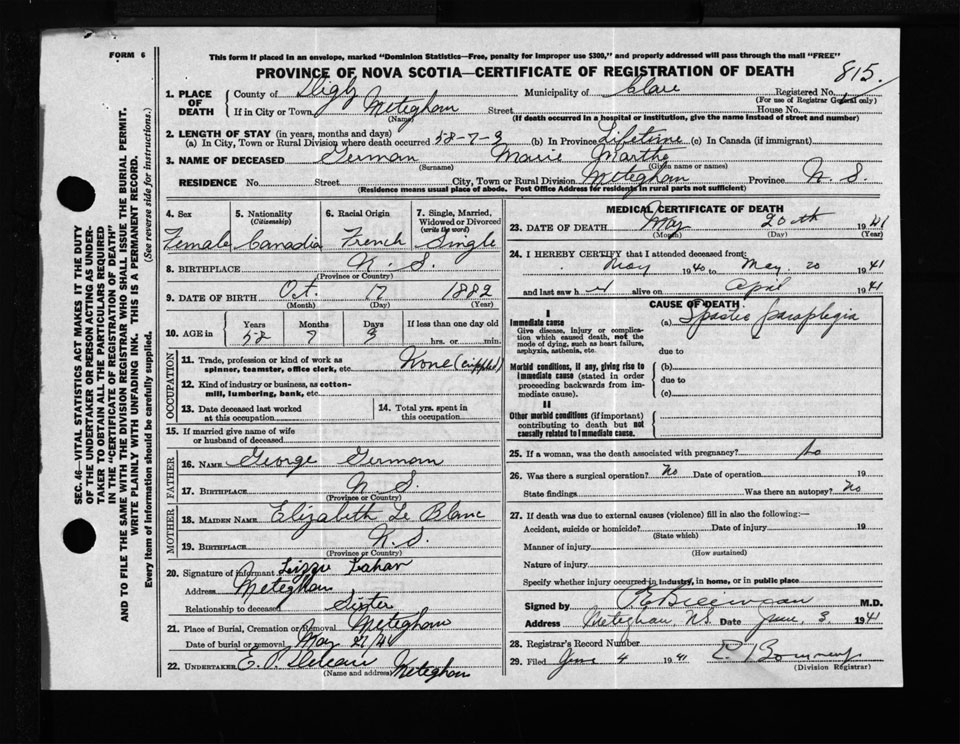 FORM 6
This form if placed in an envelope, marked "Dominion Statistics—Free, penalty for improper use $300," and properly addressed will pass through the mail "FREE"
PROVINCE OF NOVA SCOTIA—CERTIFICATE OF REGISTRATION OF DEATH
815.
1. PLACE OF DEATH
County of Digby Municipality of Clare Registered No.
(For use of Registrar General only)
If in City or Town Meteghan Street House No.
(Name) (If death occurred in a hospital or institution, give the name instead of street and number)
2. LENGTH OF STAY (in years, months and days)
(a) In City, Town or Rural Division where death occurred 58-7-3 (b) In Province Lifetime (c) In Canada (if immigrant)
3. NAME OF DECEASED German Marie Marthe
(Surname) (Given name or names)
RESIDENCE No. Street City, Town or Rural Division Meteghan Province N. S.
(Residence means usual place of abode. Post Office Address for residents in rural parts not sufficient)
4. Sex 5. Nationality (Citizenship) 6. Racial Origin 7. Single, Married, Widowed or Divorced (write the word)
Female Canadia French Single
8. BIRTHPLACE N. S.
(Province or Country)
9. DATE OF BIRTH Oct. 17 1882
(Month) (Day) (Year)
10. AGE in Years Months Days If less than one day old
58 7 3 hrs. or min.
OCCUPATION
11. Trade, profession or kind of work as spinner, teamster, office clerk, etc. None (crippled)
12. Kind of industry or business, as cotton-mill, lumbering, bank, etc.
13. Date deceased last worked at this occupation
14. Total yrs. spent in this occupation
15. If married give name of wife or husband of deceased
FATHER
16. NAME George German
17. BIRTHPLACE N. S.
(Province or Country)
MOTHER
18. MAIDEN NAME Elizabeth Le Blanc
19. BIRTHPLACE N. S.
(Province or Country)
20. Signature of informant Lizzie
Address Meteghan
Relationship to deceased Sister
21. Place of Burial, Cremation or Removal Meteghan
Date of burial or removal May 27/41
22. UNDERTAKER Meteghan
(Name and address)
MEDICAL CERTIFICATE OF DEATH
23. DATE OF DEATH May 20th 1941
(Month) (Day) (Year)
24. I HEREBY CERTIFY that I attended deceased from:
May 1940 to May 20 1941
and last saw h er alive on April 1941
CAUSE OF DEATH
I
Immediate cause (a) Spastic paraplegia
Give disease, injury or complication which caused death, not the mode of dying, such as heart failure, asphyxia, asthenia, etc.
due to
Morbid conditions, if any, giving rise to immediate cause (stated in order proceeding backwards from immediate cause).
(b)
due to
(c)
II
Other morbid conditions (if important) contributing to death but not causally related to immediate cause.
25. If a woman, was the death associated with pregnancy? No
26. Was there a surgical operation? No Date of operation 19
State findings Was there an autopsy? No
27. If death was due to external causes (violence) fill in also the following:—
Accident, suicide or homicide? Date of injury 19
(State which)
Manner of injury
(How sustained)
Nature of injury
Specify whether injury occurred in industry, in home, or in public place
Signed by M.D.
Address Meteghan, N.S. Date June 3 1941
28. Registrar's Record Number
29. Filed June 4 1941
(Division Registrar)
SEC. 46—VITAL STATISTICS ACT MAKES IT THE DUTY
OF THE UNDERTAKER OR PERSON ACTING AS UNDER-
TAKER TO OBTAIN ALL THE PARTICULARS REQUIRED
IN THE "CERTIFICATE OF REGISTRATION OF DEATH"
AND TO FILE THE SAME WITH THE DIVISION REGISTRAR WHO SHALL ISSUE THE BURIAL PERMIT.
WRITE PLAINLY WITH UNFADING INK. THIS IS A PERMANENT RECORD.
Every item of information should be carefully supplied. (See reverse side for instructions.)